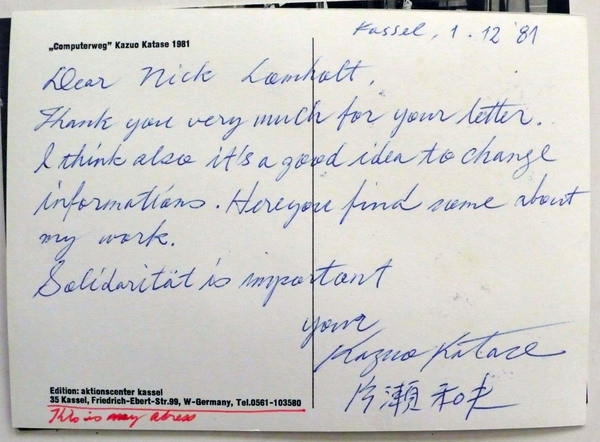 „Computerweg" Kazuo Katase 1981
Kassel, 1.12 '81
Dear Nick Lomholt,
Thank you very much for your letter.
I think also it's a good idea to change
informations. Here you find some about
my work.
Solidarität is important
your
Kazuo Katase
片瀬和夫
Edition: aktionscenter kassel
35 Kassel, Friedrich-Ebert-Str.99, W-Germany, Tel.0561-103580
This is my adress